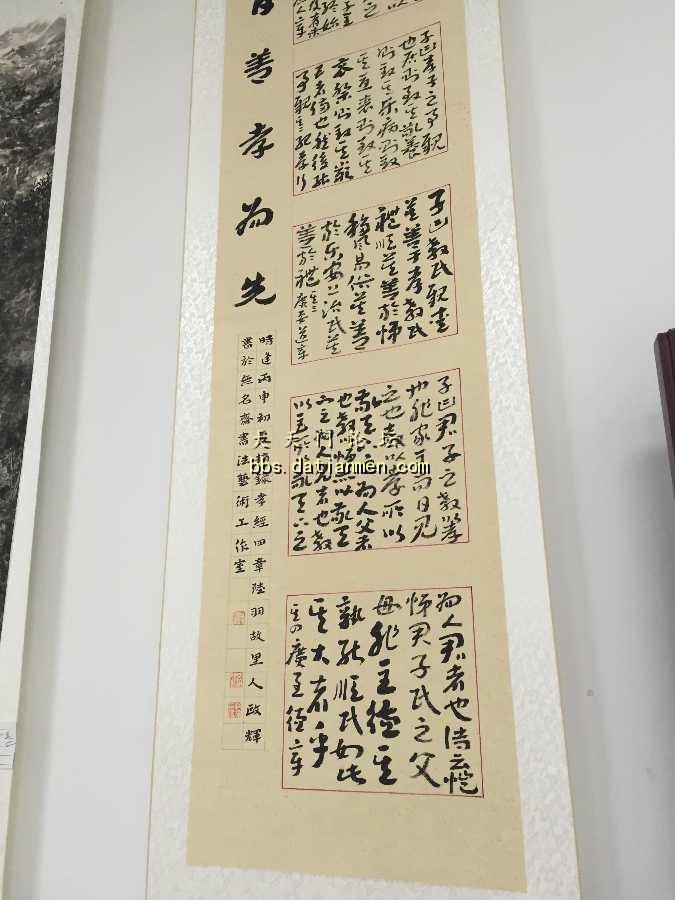 善孝为先
子曰孝子之事親
也居則致其敬養
則致其樂病則致
其憂喪則致其
哀祭則致其嚴
五者備也然後能
事親其二紀孝行
子曰教民親愛
莫善于孝教民
禮順莫善於悌
移風易俗莫善
於樂安上治民莫
善於禮其三廣要道章
子曰君子之教以孝
也非家至而日見
之也教以孝所以
敬天下之為人父者
也教悌所以敬天
下之為人兄者也教
以臣所以敬天下之
為人君者也詩云愷
悌君子民之父
母非至德其
孰能順民如此
其大者乎
其四廣至德章
時逢丙申初夏摘錄孝經四章陸羽故里人政輝
書於無名齋書法藝術工作室
大天门论坛
bbs.datianmen.com